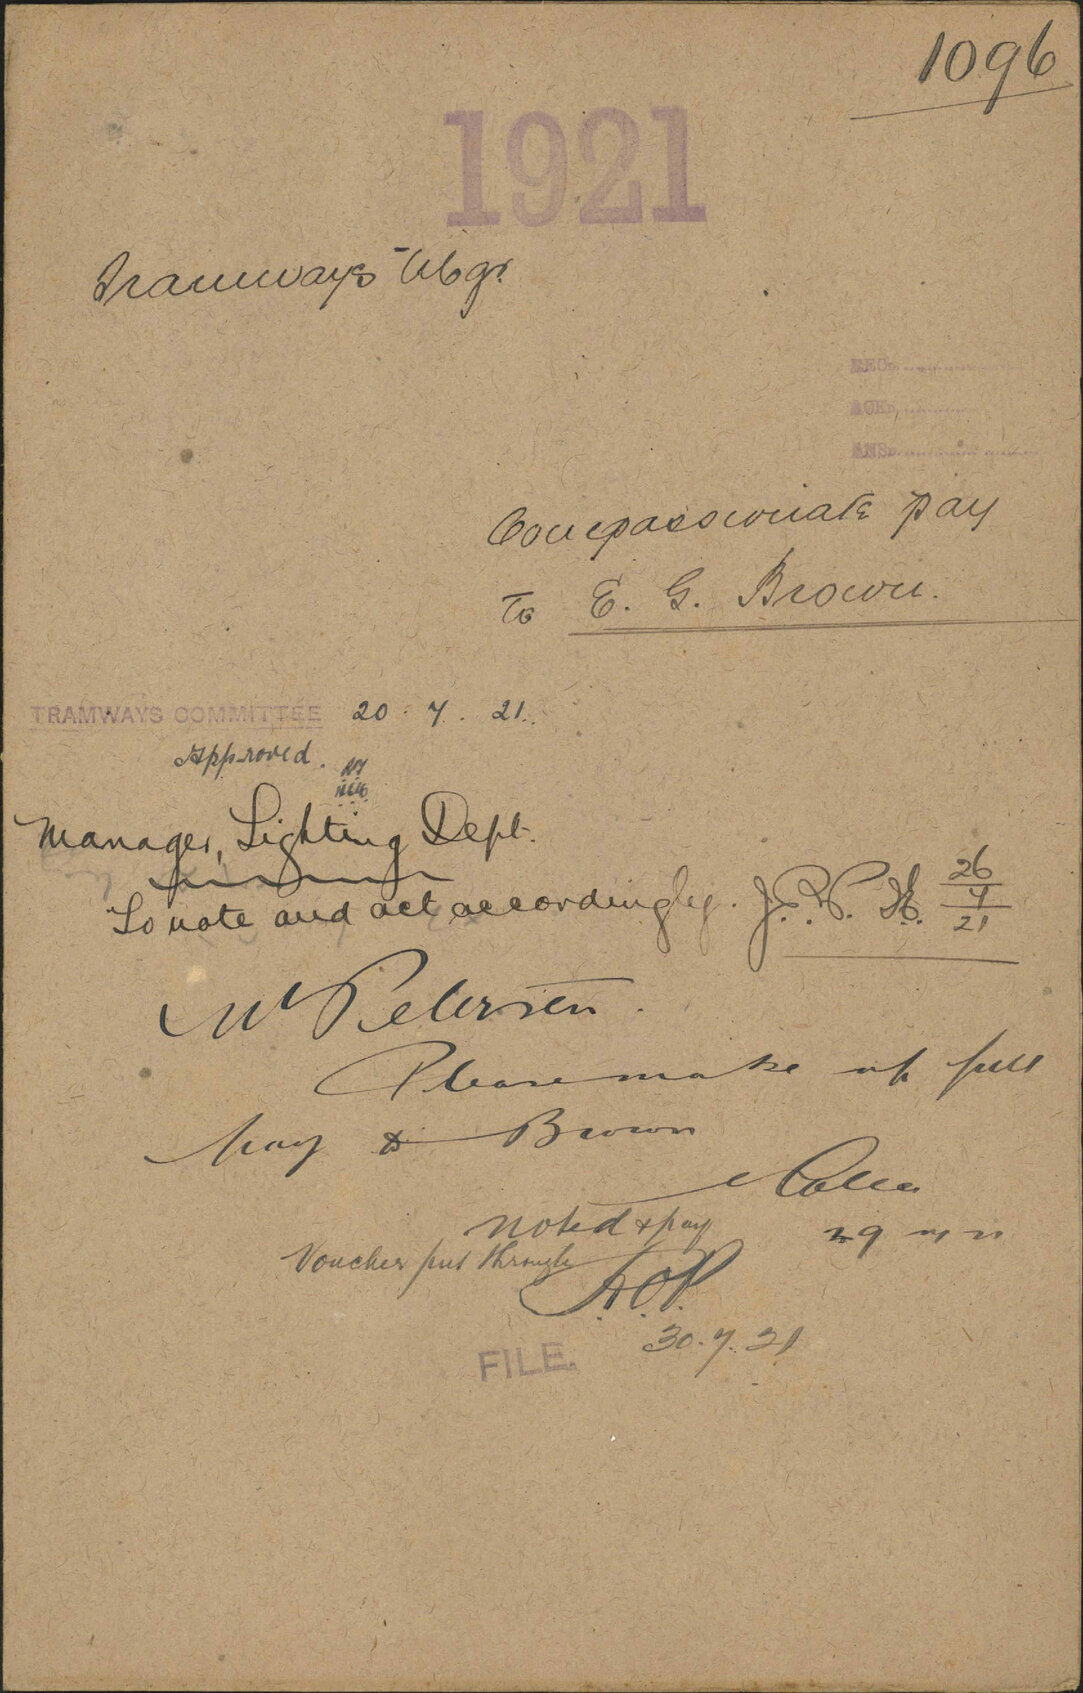 1096
1921
Tramways Mgr.
REC.
ACK.
ANS.
Compassionate pay
To E. G. Brown.
TRAMWAYS COMMITTEE 20.7.21.
Approved.
Manager, Lighting Dept.
To note and act accordingly. J.P. 26/7/21
Mr Petersen.
Please make up full
pay to Brown
29 7 21
Noted & pay
Voucher put through
A.O.P.
30.7.21
FILE.